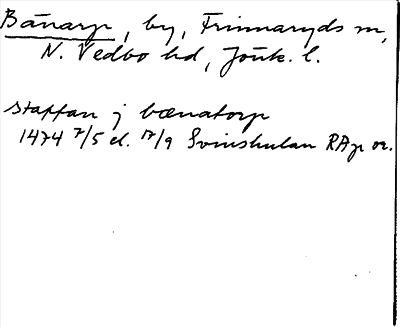 Bänarp, by, Frinnaryds sn,
N. Vedbo hd, Jönk. l.
Staffan j bænatorp
1474 7/5 el. 17/9 Svinshulan RAp or.